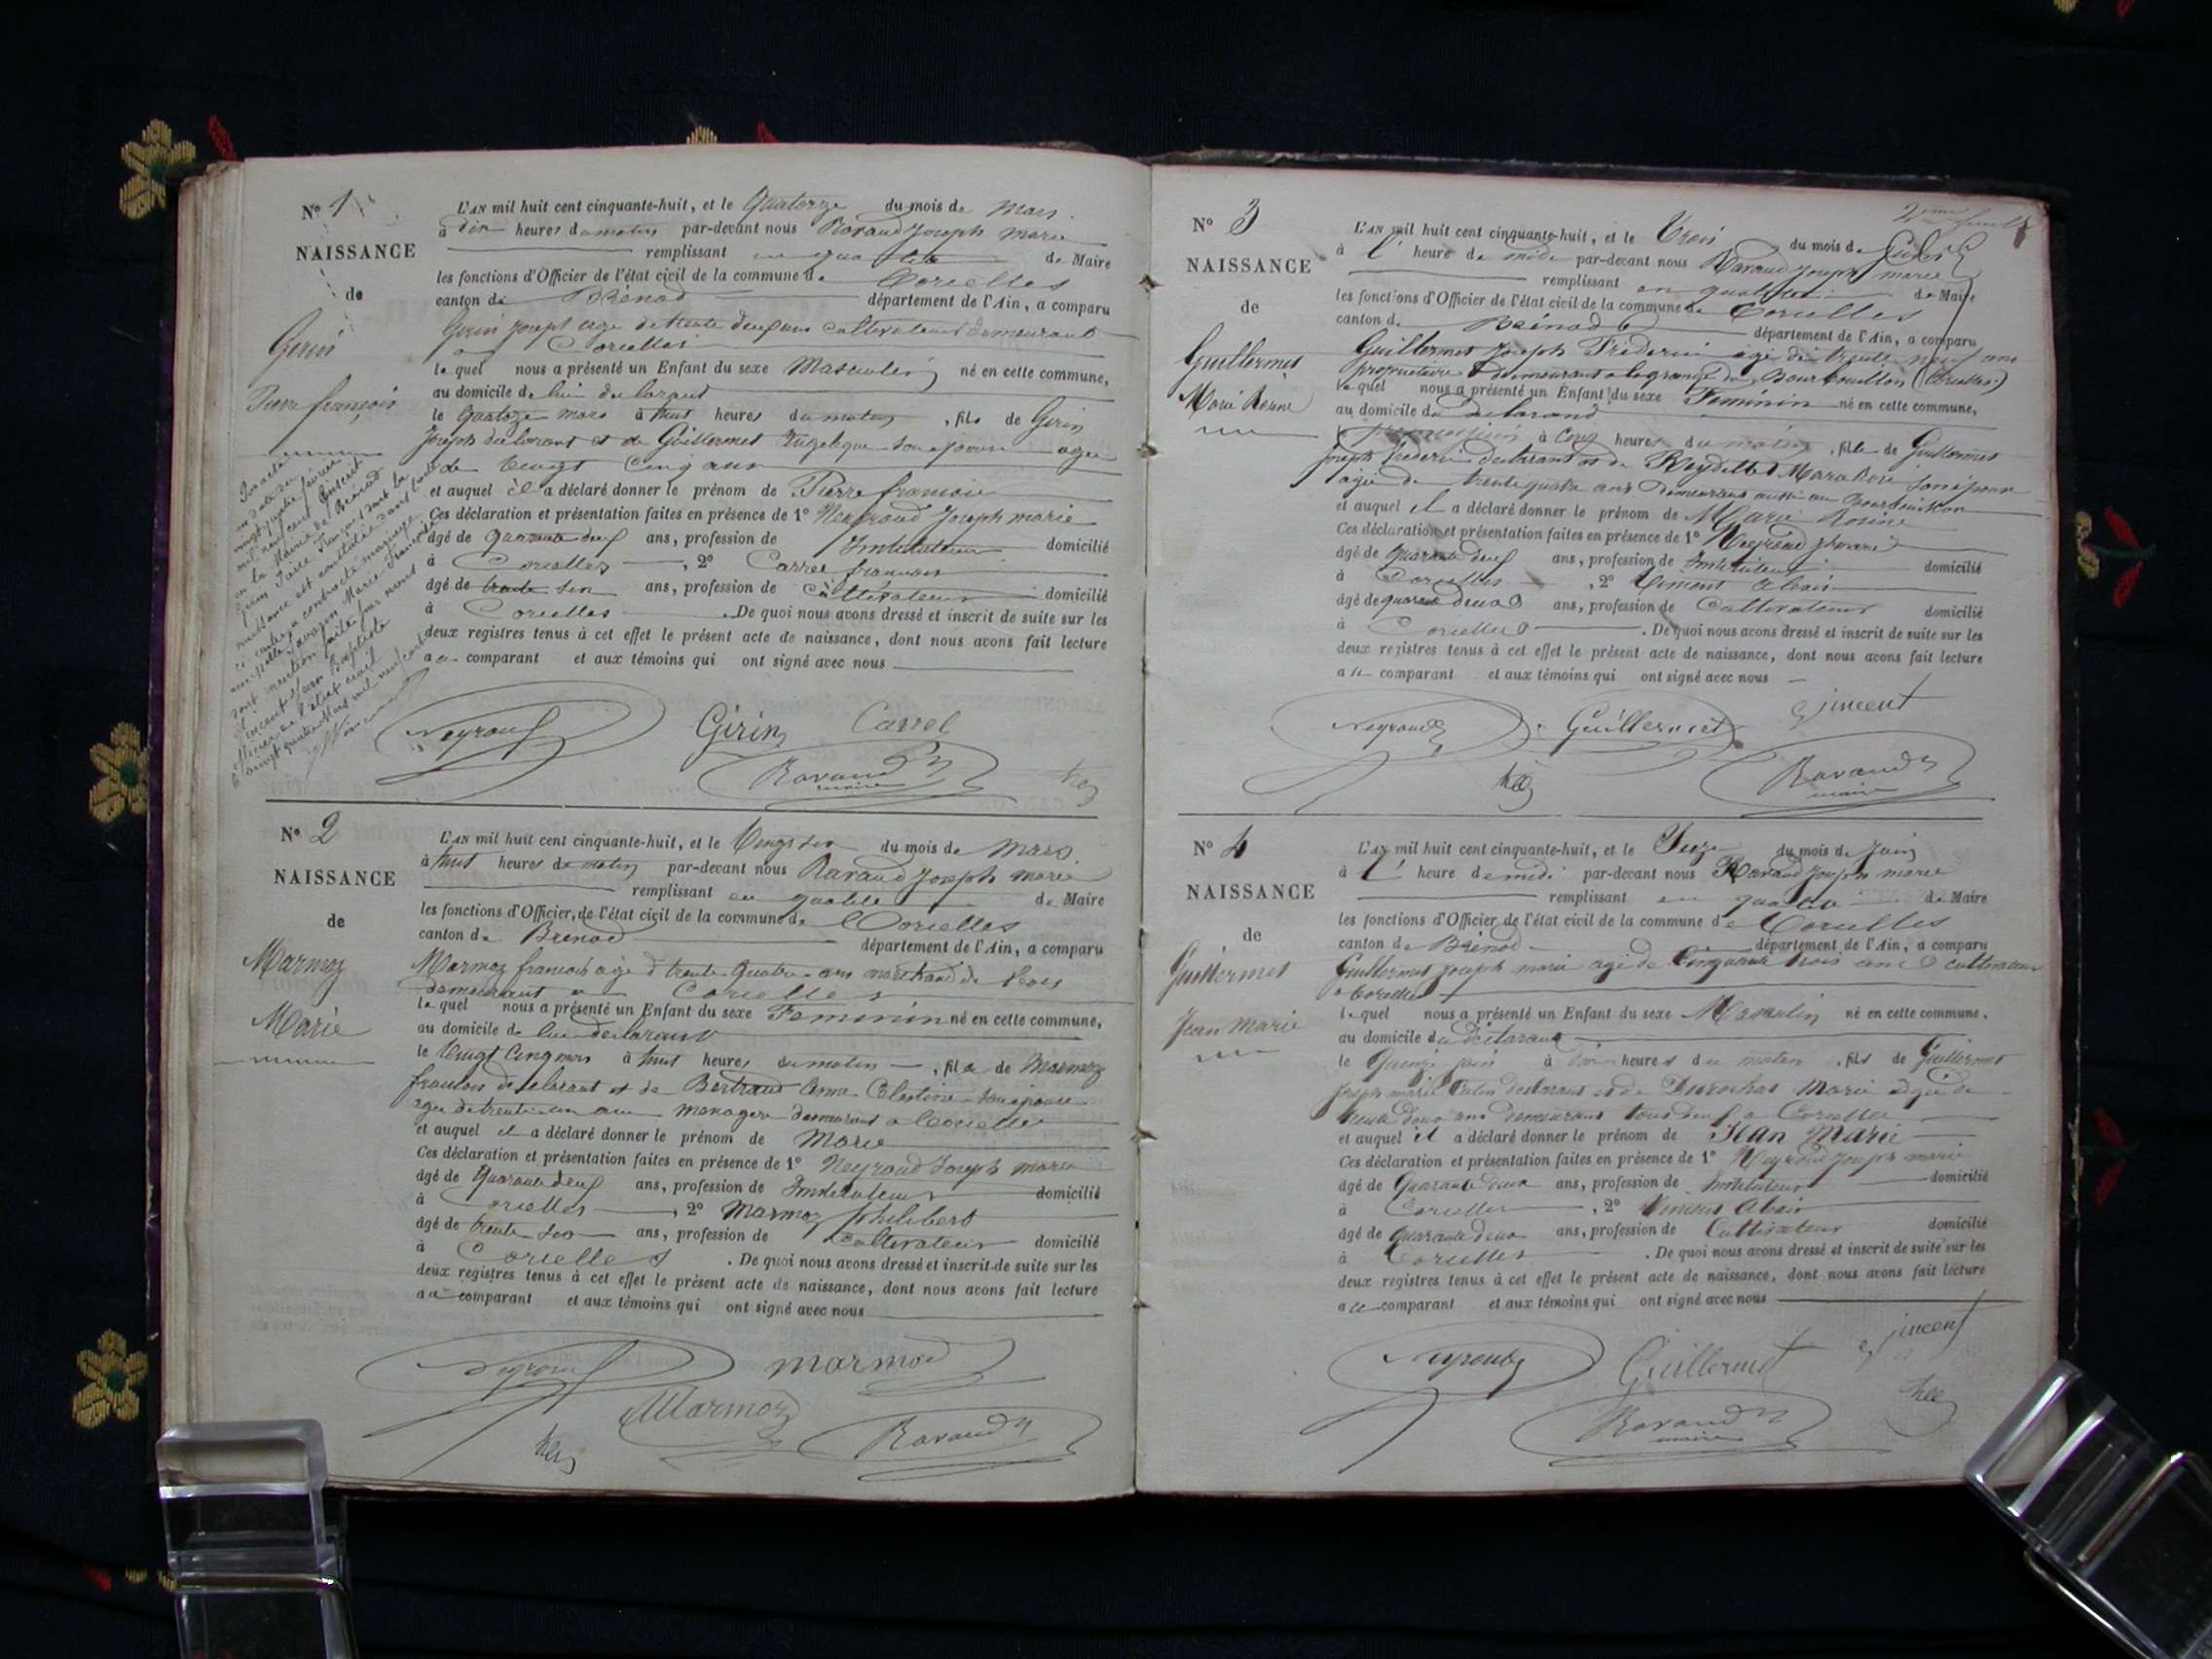 N° 1
NAISSANCE
de
Girin
Pierre françois
L'AN mil huit cent cinquante-huit, et le Quatorze du mois de Mars.
à dix heures du matin par-devant nous Ravaud Joseph Marie
remplissant en qualité de Maire
les fonctions d'Officier de l'état civil de la commune de Corcelles
canton de Brénod département de l'Ain, a comparu
Girin Joseph age de trente deux ans cultivateur demeurant
a Corcelles
le quel nous a présenté un Enfant du sexe Masculin né en cette commune,
au domicile de lui declarant
le quatoze mars à huit heures du matin, fils de Girin
Joseph declarant et de Guillermet Angelique son epouse agee
de vingt cinq ans
et auquel il a déclaré donner le prénom de Pierre francois
Ces déclaration et présentation faites en présence de 1° Neyroud Joseph marie
âgé de quarante deux ans, profession de Instituteur domicilié
à Corcelles, 2° Carrel francois
âgé de trente six ans, profession de cultivateur domicilié
à Corcelles. De quoi nous avons dressé et inscrit de suite sur les
deux registres tenus à cet effet le présent acte de naissance, dont nous avons fait lecture
au comparant et aux témoins qui ont signé avec nous
Par acte
en date du
vingt quatre février
mil neuf cent inscrit
en la Mairie de Brénod
Girin Pierre François dont la
naissance est constatée dans l'acte
ci-contre a contracté mariage
avec Marie Françoise
dont mention faite par nous
Vincent Jean Baptiste
Maire de l'état civil
le vingt quatre Mars mil neuf cent
Neyroud Girin Carrel
Ravaud
maire
N° 2
NAISSANCE
de
Marmoz
Marie
L'AN mil huit cent cinquante-huit, et le Vingt six du mois de Mars.
à huit heures du matin par-devant nous Ravaud Joseph marie
remplissant en qualité de Maire
les fonctions d'Officier de l'état civil de la commune de Corcelles
canton de Brenod département de l'Ain, a comparu
Marmoz francois agé d trente quatre ans marchand de bois
demeurant a Corcelles
le quel nous a présenté un Enfant du sexe Feminin né en cette commune,
au domicile de lui declarant
le vingt cinq mars à huit heures du matin, fille de Marmoz
francois declarant et de Bertrand Anne son epouse
agee de trente un ans menagere demeurant a Corcelles
et auquel il a déclaré donner le prénom de Marie
Ces déclaration et présentation faites en présence de 1° Neyroud Joseph marie
âgé de quarante deux ans, profession de Instituteur domicilié
à Corcelles, 2° Marmoz philibert
âgé de trente six ans, profession de cultivateur domicilié
à Corcelles. De quoi nous avons dressé et inscrit de suite sur les
deux registres tenus à cet effet le présent acte de naissance, dont nous avons fait lecture
au comparant et aux témoins qui ont signé avec nous
Neyroud marmoz
Marmoz Ravaud
2eme feuille
N° 3
NAISSANCE
de
Guillermet
Marie Rosine
L'AN mil huit cent cinquante-huit, et le Trois du mois de
à l' heure de midi par-devant nous Ravaud Joseph marie
remplissant en qualité de Maire
les fonctions d'Officier de l'état civil de la commune de Corcelles
canton d. Brénod département de l'Ain, a comparu
Guillermet Joseph Frederic agé de trente neuf ans
proprietaire demeurant a la grange du Bourbouillon (Corcelles)
le quel nous a présenté un Enfant du sexe Feminin né en cette commune,
au domicile du declarand
à cinq heures du matin, fille de Guillermet
Joseph Frederic declarant et de Reydellet Marie Rose son epouse
agée de trente quatre ans demeurant aussi au Bourbouillon
et auquel il a déclaré donner le prénom de Marie Rosine
Ces déclaration et présentation faites en présence de 1° Neyroud J marie
âgé de quarante deux ans, profession de Instituteur domicilié
à Corcelles, 2° Vincent
âgé de quarante deux ans, profession de Cultivateur domicilié
à Corcelles. De quoi nous avons dressé et inscrit de suite sur les
deux registres tenus à cet effet le présent acte de naissance, dont nous avons fait lecture
au comparant et aux témoins qui ont signé avec nous
Neyroud Guillermet Vincent
Ravaud
maire
N° 4
NAISSANCE
de
Guillermet
Jean Marie
L'AN mil huit cent cinquante-huit, et le Seize du mois de Juin
à l' heure de midi par-devant nous Ravaud Joseph marie
remplissant en qualité de Maire
les fonctions d'Officier de l'état civil de la commune de Corcelles
canton de Brénod département de l'Ain, a comparu
Guillermet Joseph marie agé de Cinquante trois ans cultivateur
a Corcelles
le quel nous a présenté un Enfant du sexe Masculin né en cette commune,
au domicile du déclarant
le Quinze juin à heures du matin, fils de Guillermet
Joseph marie declarant et de Durochat Marie agée de
trente deux ans demeurant tous deux a Corcelles
et auquel il a déclaré donner le prénom de Jean Marie
Ces déclaration et présentation faites en présence de 1° Neyroud Joseph marie
âgé de Quarante deux ans, profession de Instituteur domicilié
à Corcelles, 2° Vincent
âgé de quarante deux ans, profession de Cultivateur domicilié
à Corcelles. De quoi nous avons dressé et inscrit de suite sur les
deux registres tenus à cet effet le présent acte de naissance, dont nous avons fait lecture
au comparant et aux témoins qui ont signé avec nous
Neyroud Guillermet Vincent
Ravaud
maire